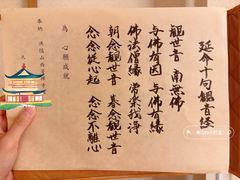 延命十句觀音経
觀世音 南無佛
与佛有因 与佛有縁
佛法僧縁 常楽我浄
朝念觀世音 暮念觀世音
念念從心起 念念不離心
為 心願成就
奉納 洪隠山西